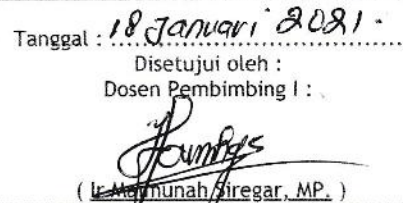 Tanggal : 18 Januari 2021.
Disetujui oleh :
Dosen Pembimbing I :
( Ir Maimunah Siregar, MP. )